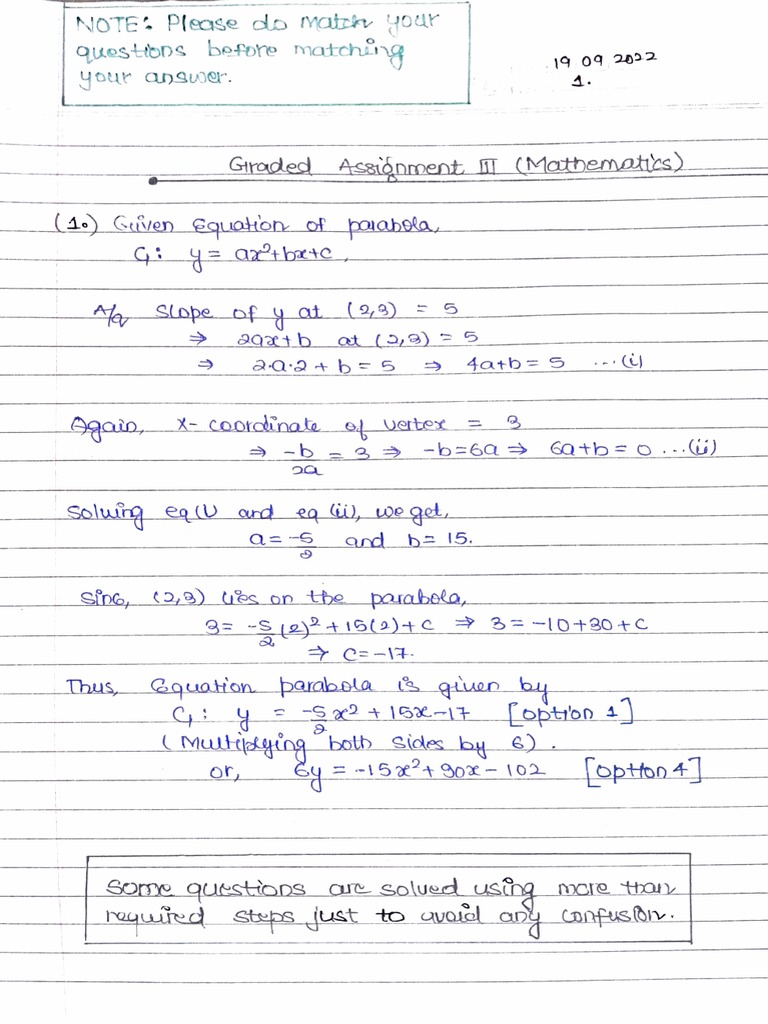 NOTE: Please do match your
questions before matching
your answer.
19 09 2022
1.
Graded Assignment III (Mathematics)
(1.) Given Equation of parabola,
C₁: y = ax²+bx+c,
A/q slope of y at (2,3) = 5
⇒ 2ax+b at (2,3) = 5
⇒ 2·a·2 + b = 5 ⇒ 4a+b = 5 ...(i)
Again, x-coordinate of vertex = 3
⇒ -b/2a = 3 ⇒ -b=6a ⇒ 6a+b = 0 ...(ii)
Solving eq(i) and eq (ii), we get,
a = -5/2 and b = 15.
Sinc, (2,3) lies on the parabola,
3 = -5/2 (2)² + 15(2) + c ⇒ 3 = -10+30+c
⇒ c = -17.
Thus, Equation parabola is given by
C₁: y = -5/2 x² + 15x-17 [option 1]
(Multiplying both sides by 6).
or, 6y = -15x²+90x-102 [option 4]
Some questions are solved using more than
required steps just to avoid any confusion.